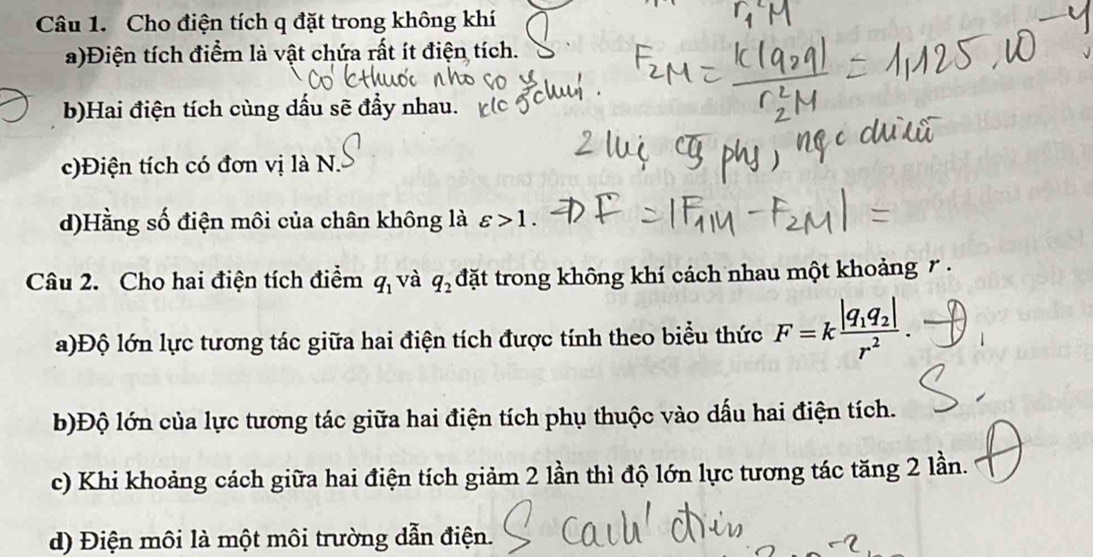 Câu 1. Cho điện tích q đặt trong không khí
a)Điện tích điểm là vật chứa rất ít điện tích. S
có kthước nhỏ so
b)Hai điện tích cùng dấu sẽ đẩy nhau.
c)Điện tích có đơn vị là N. S
d)Hằng số điện môi của chân không là ε>1
F₂M = k|q₂q| / r²₂M = 1,125.10
2 lực cg phg, ngc chiều
F = |F₁M - F₂M| =
Câu 2. Cho hai điện tích điểm q₁ và q₂ đặt trong không khí cách nhau một khoảng r .
a)Độ lớn lực tương tác giữa hai điện tích được tính theo biểu thức F = k |q₁q₂| / r² . Đ
b)Độ lớn của lực tương tác giữa hai điện tích phụ thuộc vào dấu hai điện tích. S
c) Khi khoảng cách giữa hai điện tích giảm 2 lần thì độ lớn lực tương tác tăng 2 lần. Đ
d) Điện môi là một môi trường dẫn điện. S cách điện